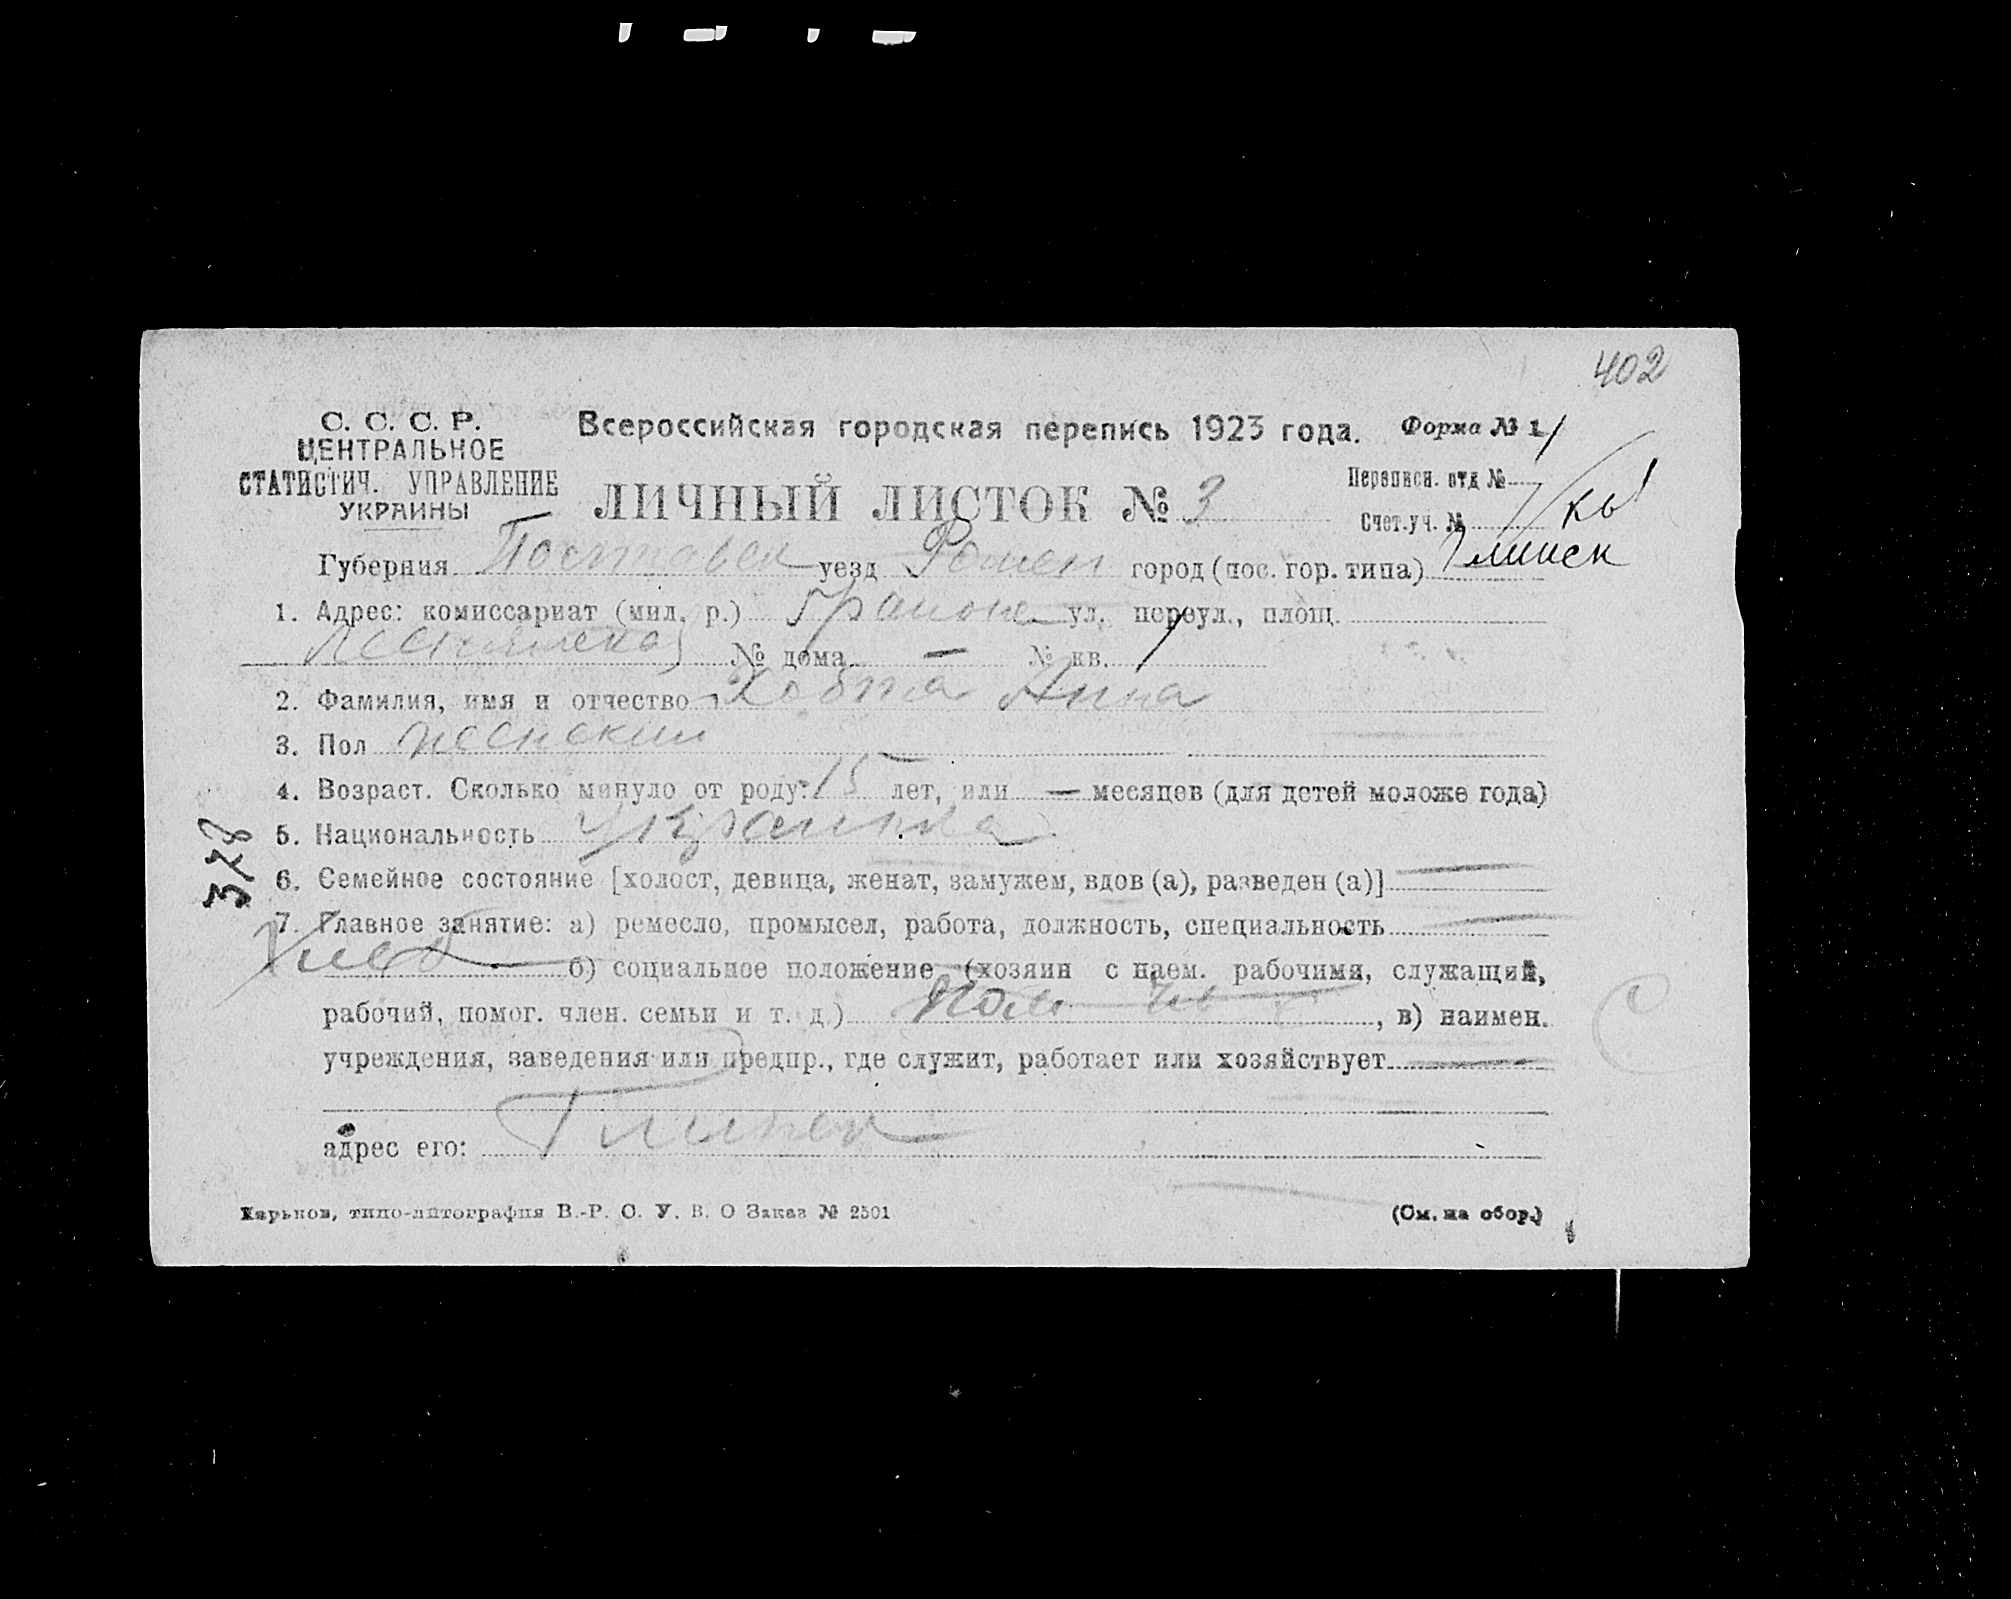 402
С. С. С. Р.
ЦЕНТРАЛЬНОЕ
СТАТИСТИЧ. УПРАВЛЕНИЕ
УКРАИНЫ
Всероссийская городская перепись 1923 года. Форма № 1
ЛИЧНЫЙ ЛИСТОК № 3
Переписн. отд №
Счет.уч. №
Губерния Полтавск уезд Ромен город (пос. гор. типа) Глинск
1. Адрес: комиссариат (мил. р.) ул. переул., площ.
№ дома — № кв.
2. Фамилия, имя и отчество Анна
3. Пол женский
4. Возраст. Сколько минуло от роду: 15 лет, или — месяцев (для детей моложе года)
5. Национальность Украинка
378
6. Семейное состояние [холост, девица, женат, замужем, вдов (а), разведен (а)] —
7. Главное занятие: а) ремесло, промысел, работа, должность, специальность —
Хлеб б) социальное положение (хозяин с наем. рабочими, служащий,
рабочий, помог. член. семьи и т. д.) , в) наимен.
учреждения, заведения или предпр., где служит, работает или хозяйствует —
адрес его: Глинск
Харьков, типо-литография В.-Р. С. У. В. О Заказ № 2501
(См. на обор.)